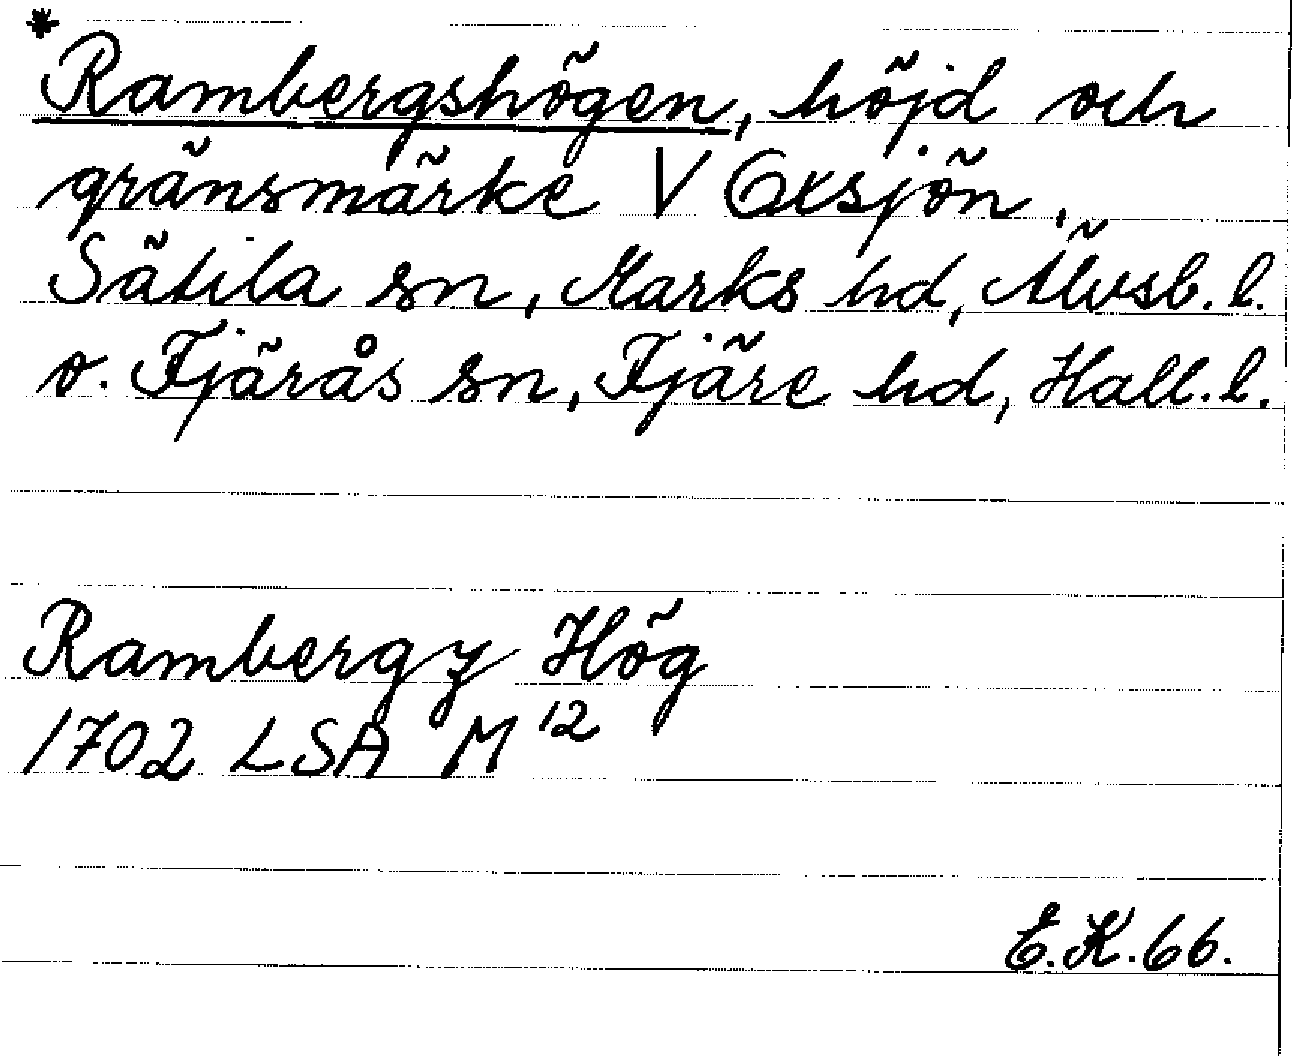 *Rambergshögen, höjd och
gränsmärke V Oxsjön,
Sätila sn, Marks hd, Älvsb. l.
o. Fjärås sn, Fjäre hd, Hall. l.
Rambergz Hög
1702 LSA M 12
E.K. 66.